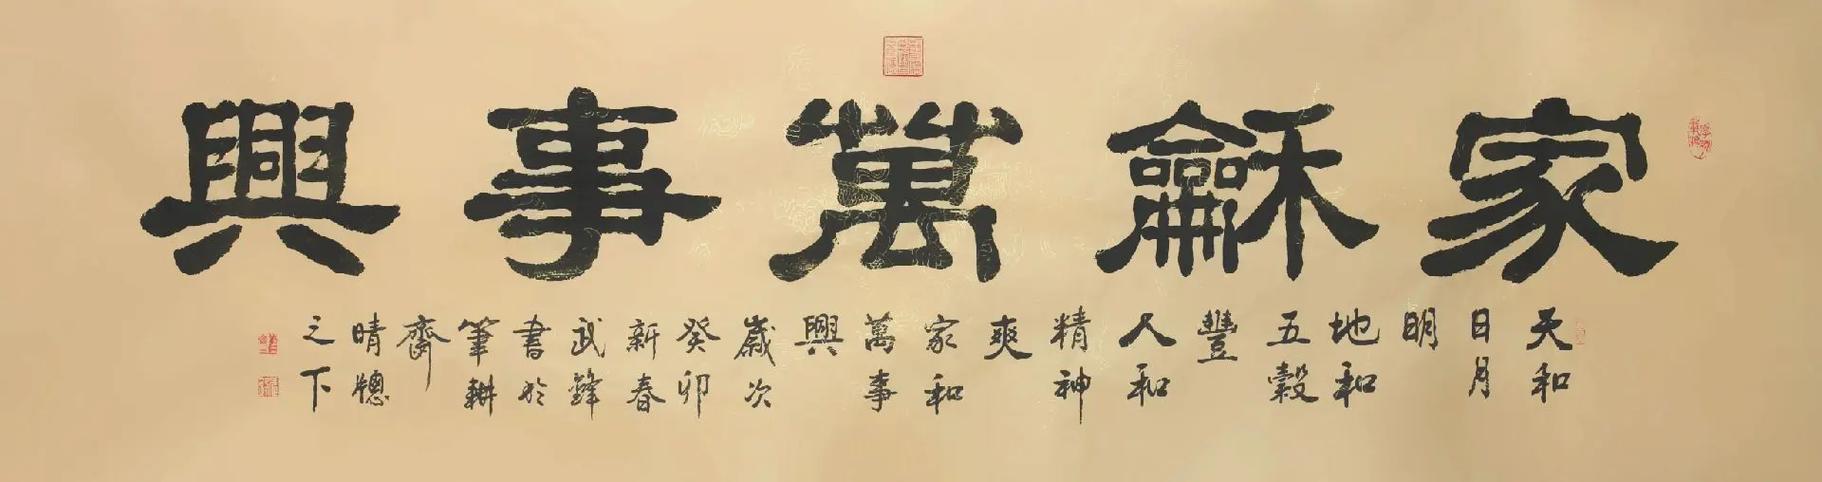 家龢萬事興
天和
日月
明
地和
五穀
豐
人和
精神
爽
家和
萬事
興
歲次
癸卯
新春
武鋒
書於
筆耕
齋
晴窗
之下